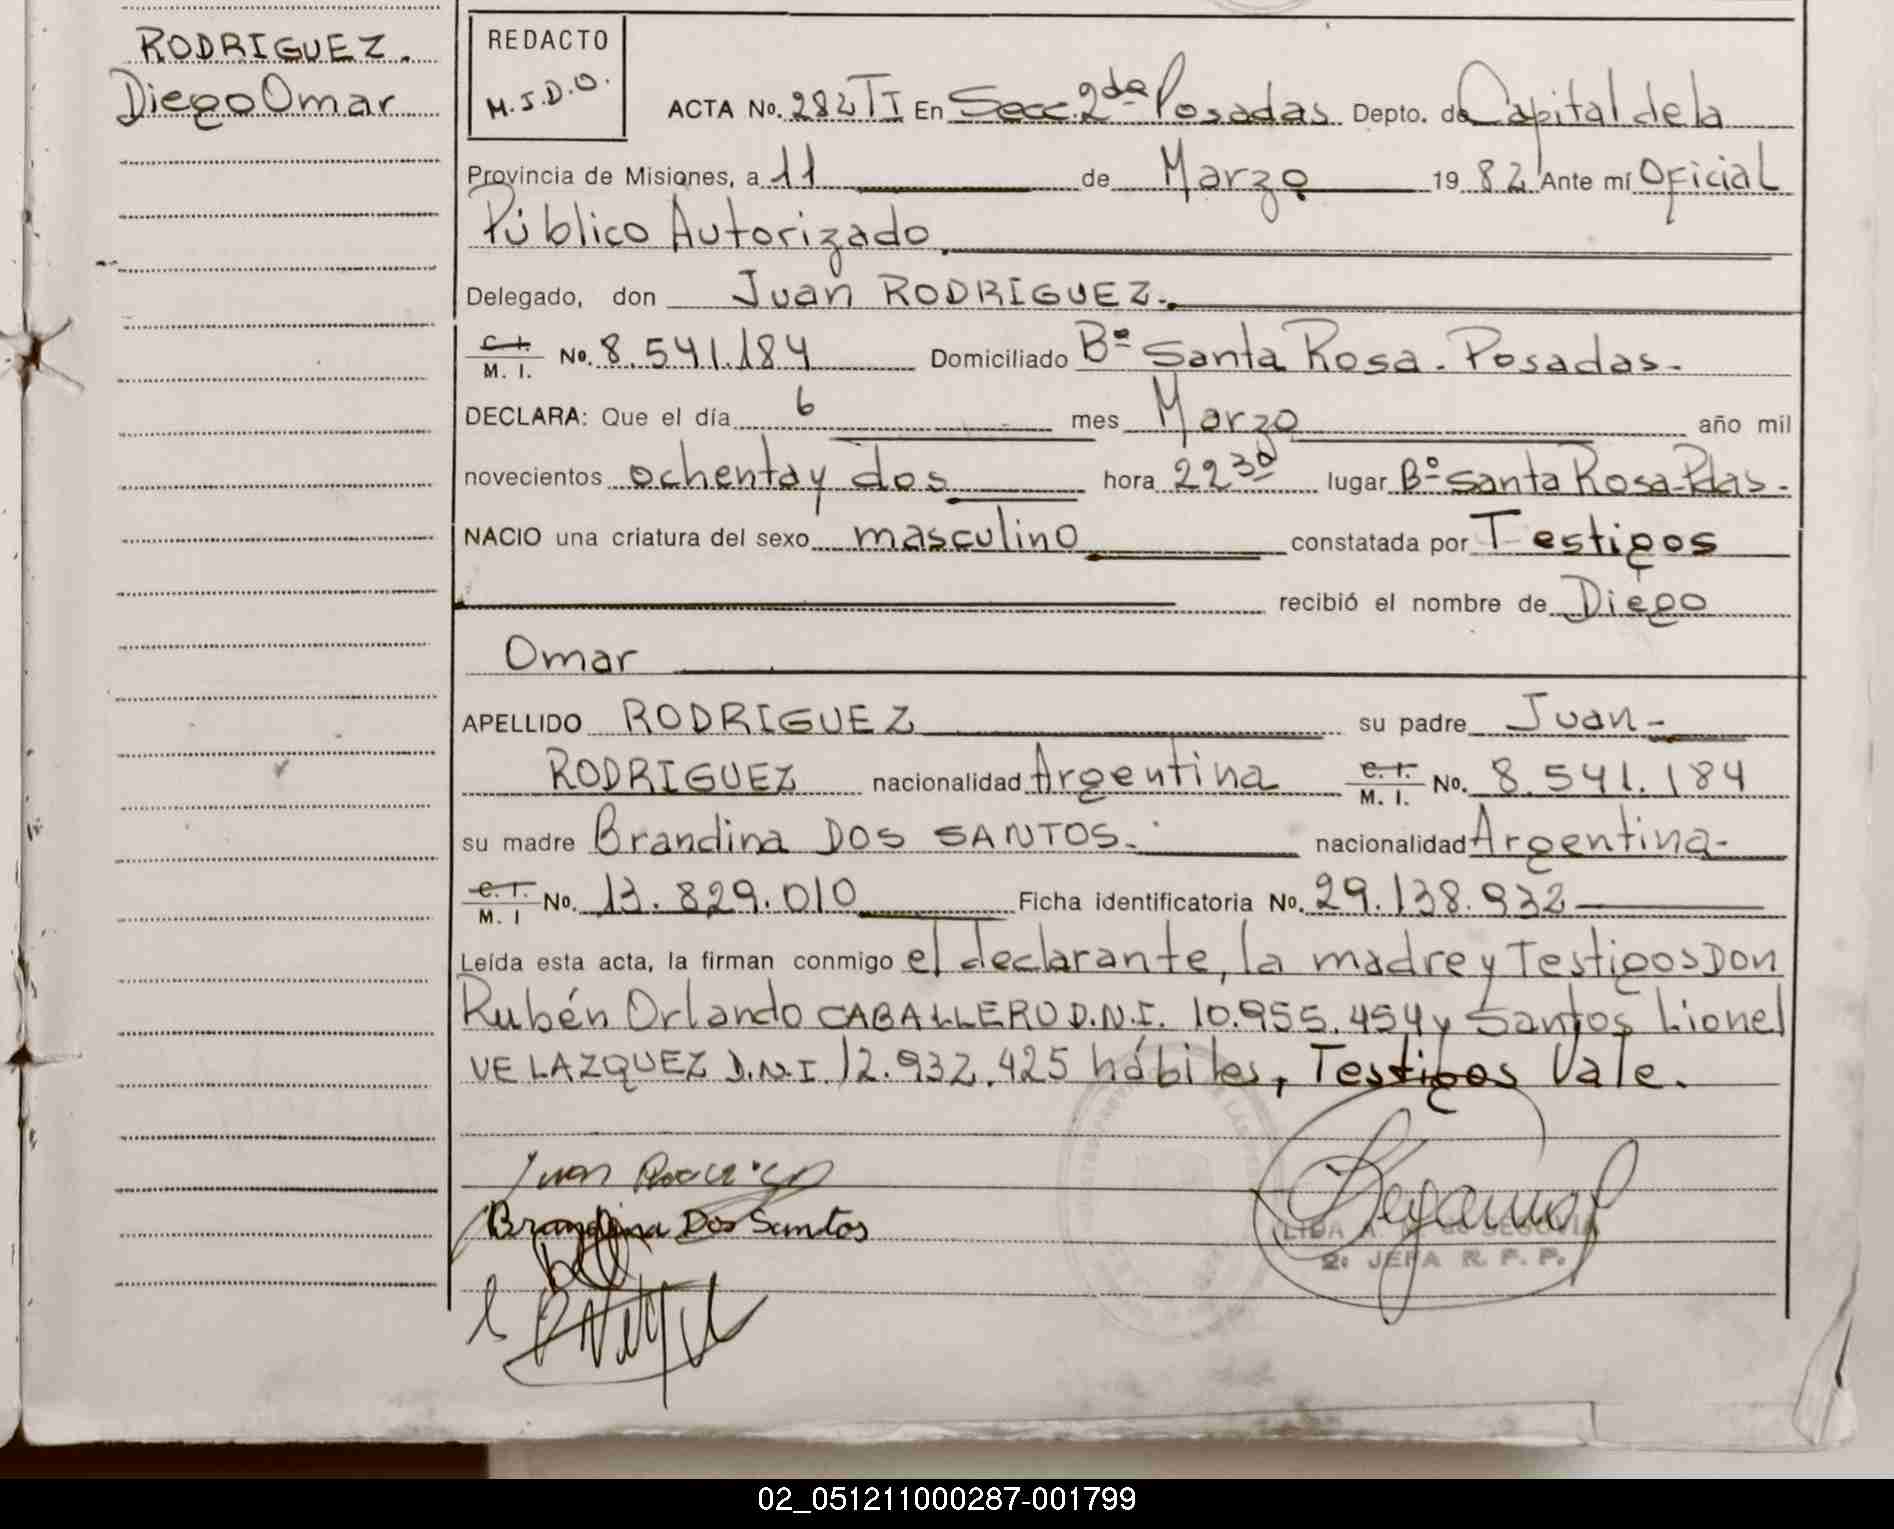 RODRIGUEZ.
Diego Omar
REDACTO
M.J.D.O.
ACTA No. 282 TI En Secc. 2da Posadas Depto. de Capital de la
Provincia de Misiones, a 11 de Marzo 1982 Ante mí Oficial
Público Autorizado.
Delegado, don Juan RODRIGUEZ.
C. I.
M. I. No. 8.541.184 Domiciliado Bº Santa Rosa - Posadas -
DECLARA: Que el día 6 mes Marzo año mil
novecientos ochenta y dos hora 22 30 lugar Bº Santa Rosa-Pdas-
NACIO una criatura del sexo masculino constatada por Testigos
recibió el nombre de Diego
Omar
APELLIDO RODRIGUEZ su padre Juan -
RODRIGUEZ nacionalidad Argentina C. I. M. I. No. 8.541.184
su madre Brandina DOS SANTOS. nacionalidad Argentina-
C. I.
M. I No. 13.829.010 Ficha identificatoria No. 29.138.932
Leída esta acta, la firman conmigo el declarante, la madre y Testigos Don
Rubén Orlando CABALLERO D.N.I. 10.955.454 y Santos Lionel
VELAZQUEZ D.N.I. 12.932.425 hábiles, Testigos Vale.
Brandina Dos Santos
SEGOVIA
2: JEFA R. P. P.
02_051211000287-001799